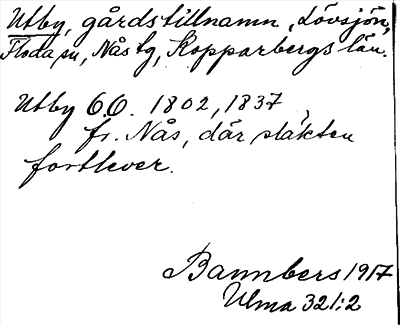 Utby, gårdstillnamn, Lövsjön,
Floda sn, Nås tg, Kopparbergs län.
Utby O.O. 1802, 1837,
fr. Nås, där släkten
fortlever.
Bannbers 1917
Ulma 321:2